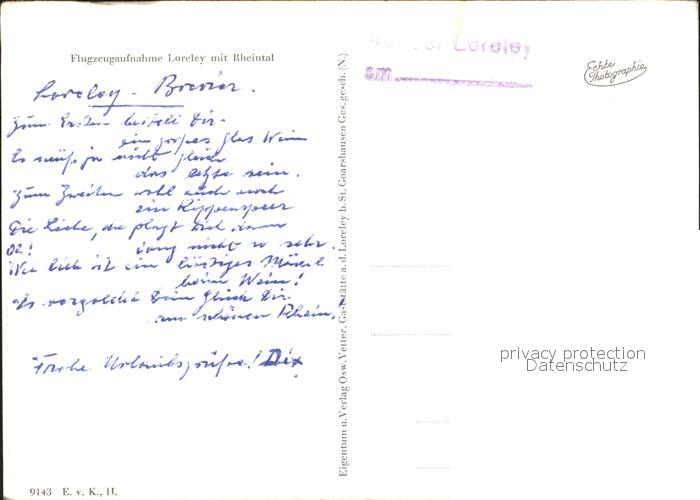 Flugzeugaufnahme Loreley mit Rheintal
Loreley - Brevier.
Zum Ersten bestell Dir
ein großes Glas Wein
Es muß ja nicht gleich
das letzte sein.
Zum Zweiten wohl auch noch
ein Rippenspeer
Die Liebe, die plagt Dich dann
lang nicht so sehr.
Wie lieb ist ein Mädel
beim Wein!
vergoldet Dein Glück Dir
am schönen Rhein.
Frohe Urlaubsgrüße!
9143 E. v. K., H.
Eigentum u. Verlag Osw. Vetter, Gaststätte a. d. Loreley b. St. Goarshausen Ges. gesch. (N.)
Loreley
am
Echte
Photographie
privacy protection
Datenschutz